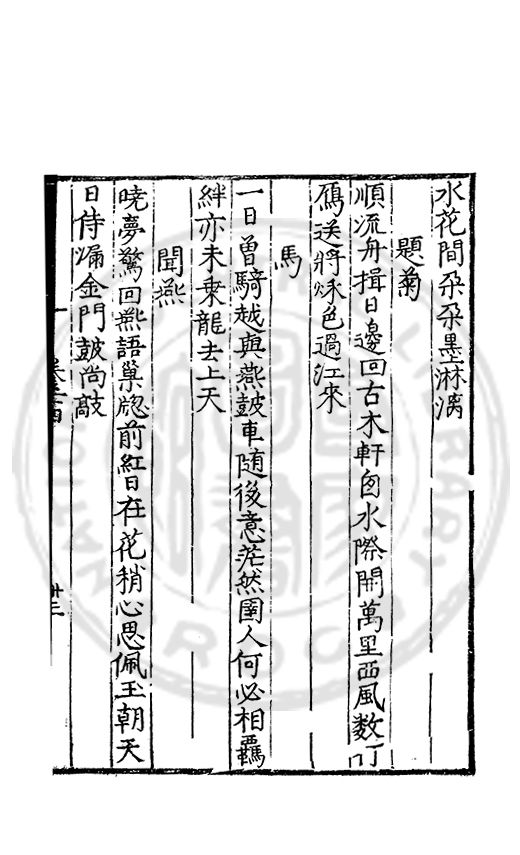 水花間朶朶墨淋漓
題菊
順流舟揖日邊回古木軒囱水際開萬里西風數
鴈送將秌色過江來
馬
一日曾騎越與燕鼓車随後意茫然圉人何必相羈
絆亦未乗龍去上天
聞燕
曉夢驚回燕語巢牕前紅日在花稍心思佩玉朝天
日侍漏金門鼓尚敲